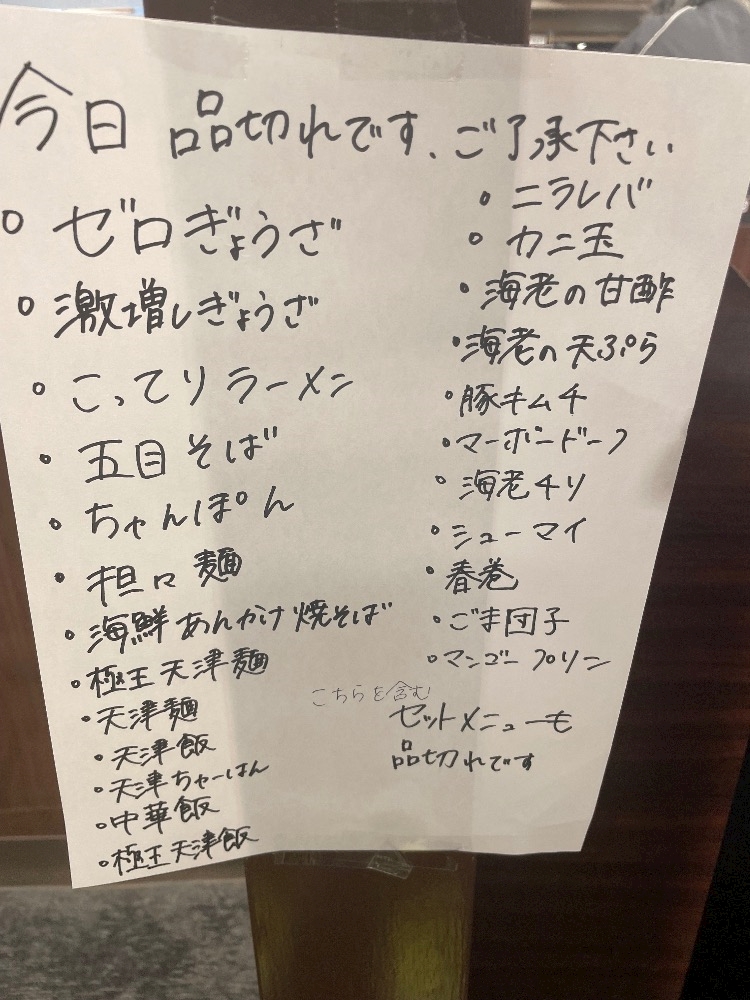 今日 品切れです、ご了承下さい
・ゼロぎょうざ
・激増しぎょうざ
・こってりラーメン
・五目そば
・ちゃんぽん
・担々麺
・海鮮あんかけ焼そば
・極王天津麺
・天津麺
・天津飯
・天津ちゃーはん
・中華飯
・極王天津飯
・ニラレバ
・カニ玉
・海老の甘酢
・海老の天ぷら
・豚キムチ
・マーボードーフ
・海老チリ
・シューマイ
・春巻
・ごま団子
・マンゴープリン
こちらを含む
セットメニューも
品切れです